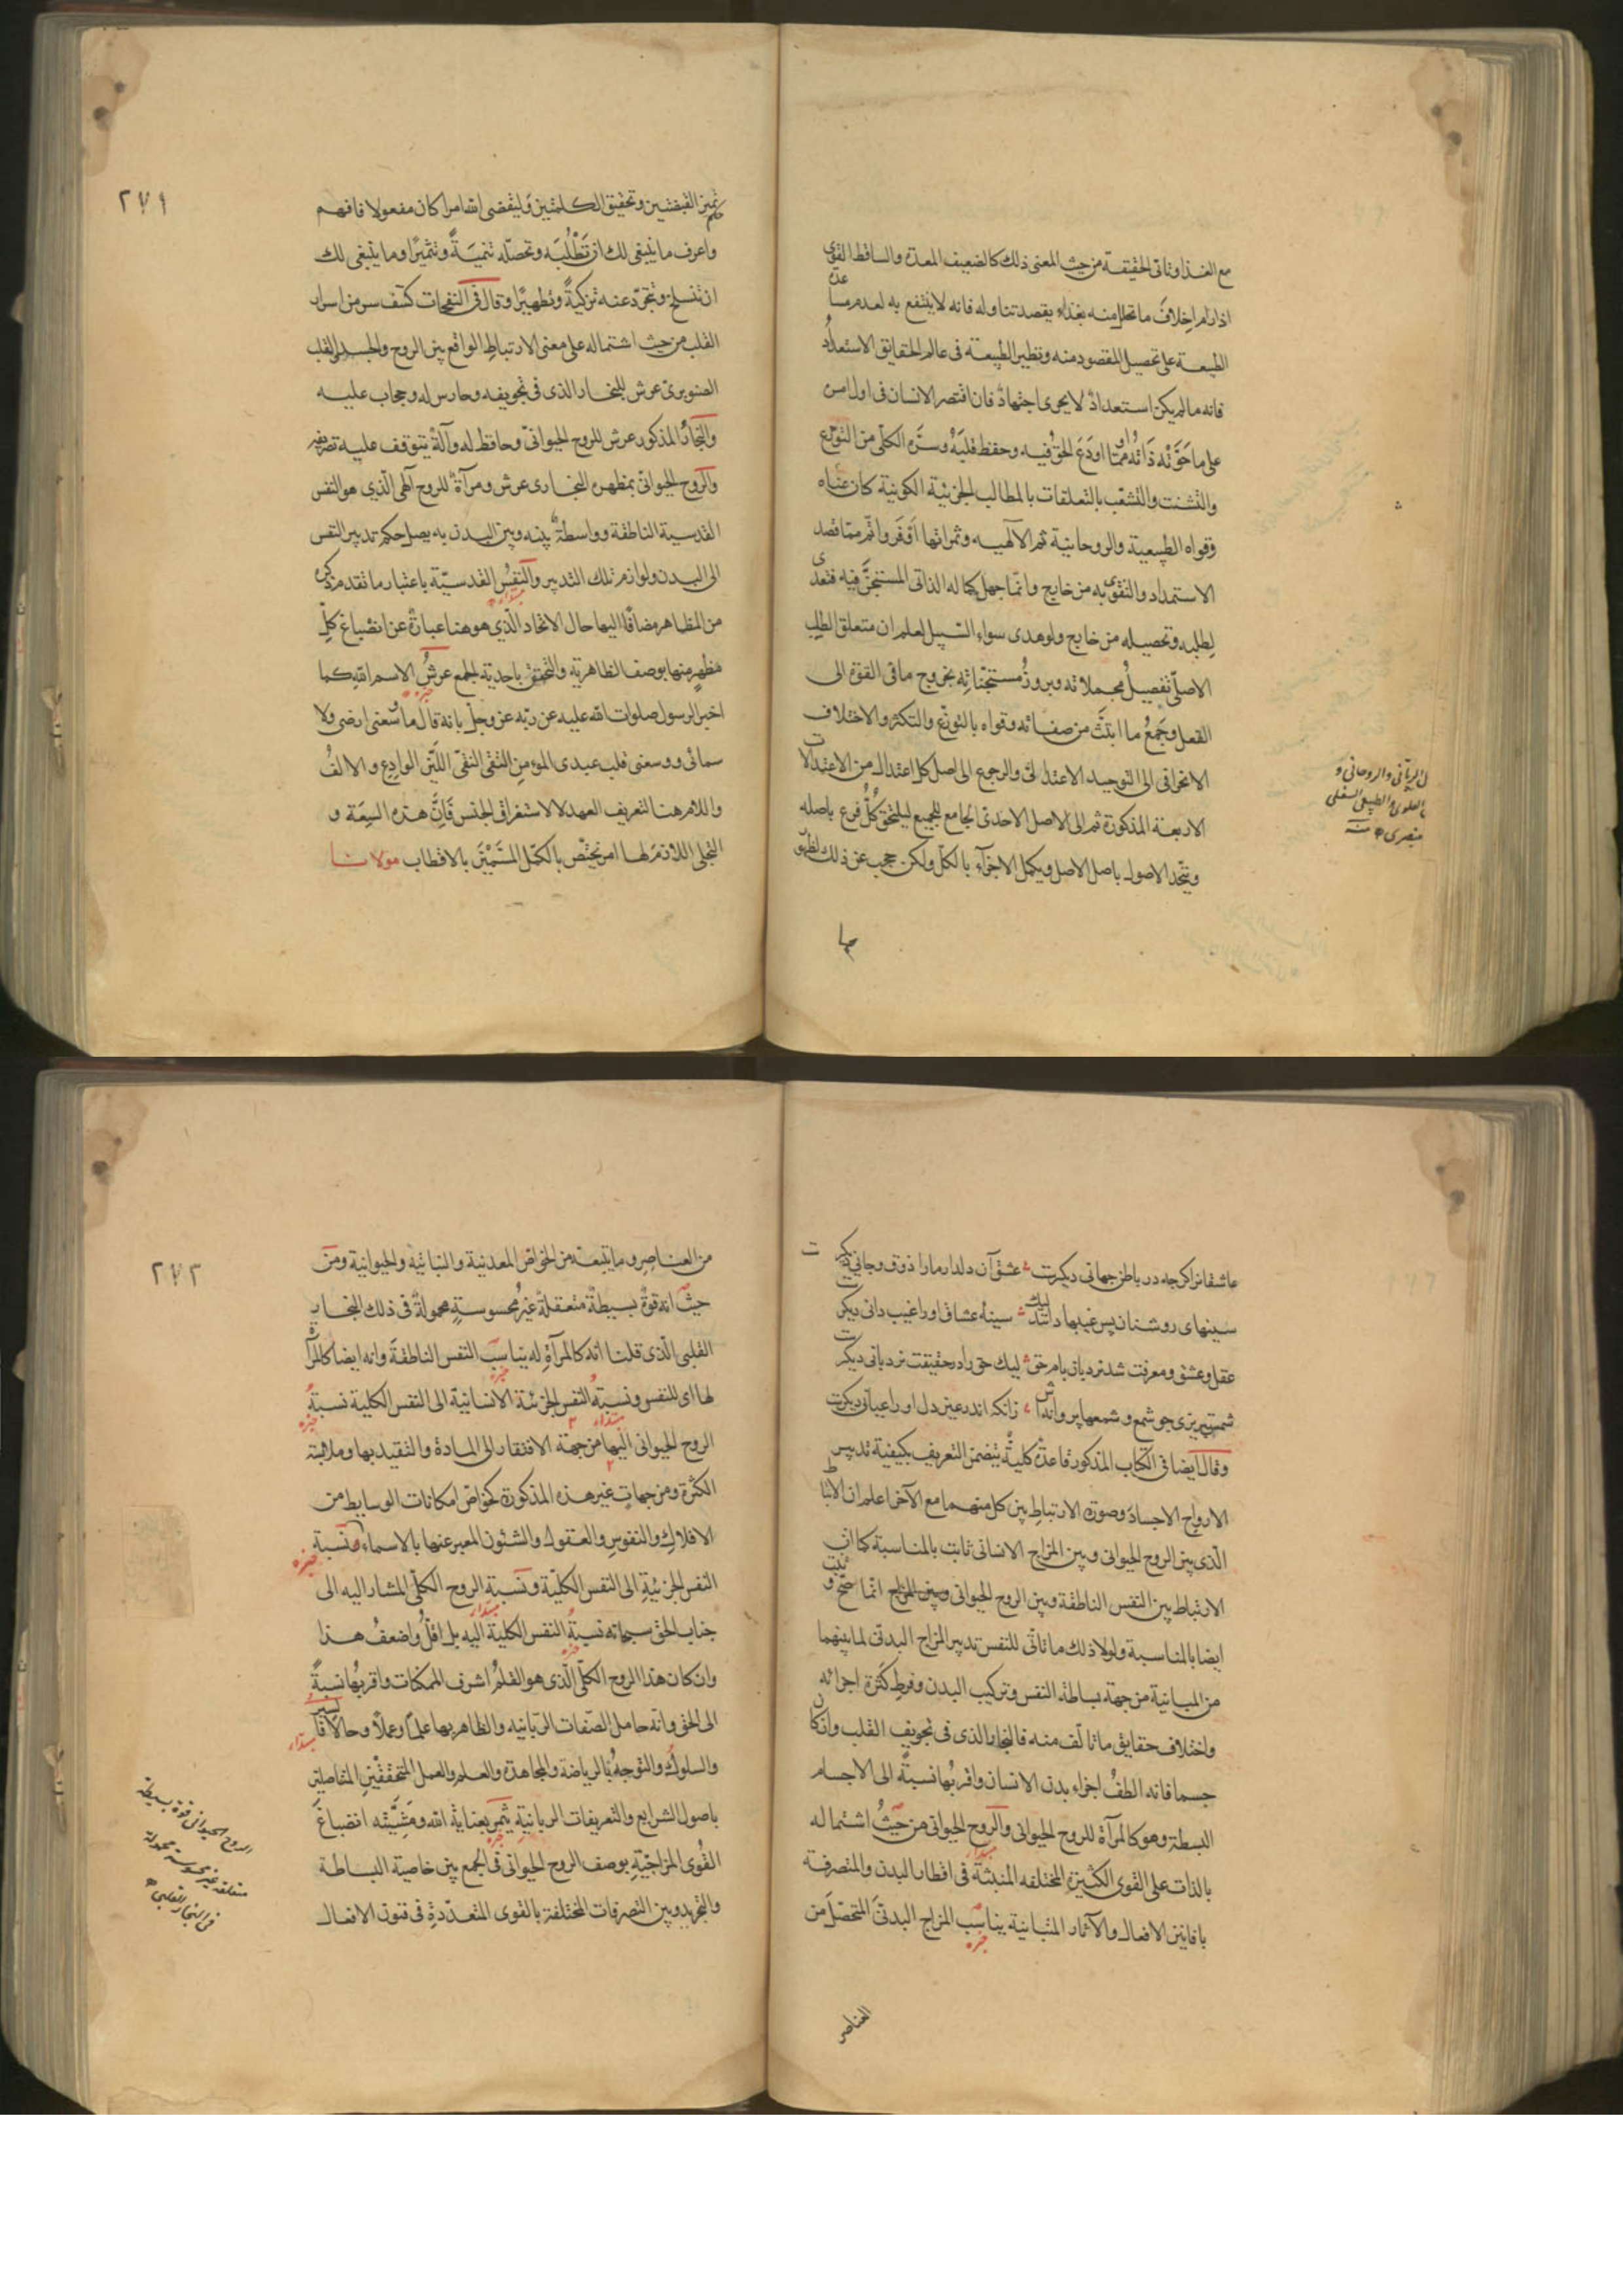 مع الغذا وثاني الحقيقة من حيث المعنى ذلك كالضعيف المعدة والساقط القوى
اذا رام اخلاف ما تحلل منه بغذاء يقصد تناوله فانه لا ينتفع به لعدم مساعدة
الطبيعة على تحصيل المقصود منه ونظير الطبيعة في عالم الحقايق الاستعداد
فانه ما لم يكن استعداد لا يجدى اجتهاد فان اقتصر الانسان في اول امره
على ما حوته ذاته مما اودع الحق فيه وحفظ قلبه وسره الكلي من التوزع
والتشتت والتشعب بالتعلقات بالمطالب الجزئية الكونية كان غناه
وقواه الطبيعية والروحانية ثم الآلهيه وثمراتها اوفر واتم مما قصد
الاستمداد والتقوى به من خارج وانما جهل كماله الذاتي المستجن فيه فتعدى
لطلبه وتحصيله من خارج ولو هدى سواء السبيل لعلم ان متعلق الطلب
الاصلي تفصيل مجملاته وبروز مستجناته بخروج ما في القوة الى
الفعل وجمع ما انبث من صفاته وقواه بالتوزع والتكثر والاختلاف
الانحرافي الى التوحيد الاعتدالي والرجوع الى اصل كل اعتدال من الاعتدالات
الاربعة المذكورة ثم الى الاصل الاحدي الجامع للجميع ليلتحق كل فرع باصله
ويتحد الاصول باصل الاصل ويكمل الاجزاء بالكل ولكن حجب عن ذلك لظهور
الرباني والروحاني و
العلوي والطبيعي السفلي
عنصري
حكم
٢٧١
تميز القبضتين وتحقيق الكلمتين وليقضى الله امرا كان مفعولا فافهم
واعرف ما ينبغي لك ان تطلبه وتحصله تنمية وتثميرا وما ينبغي لك
ان تنسلخ وتتجرد عنه تزكية وتطهيرا وقال في النفحات كشف سر من اسرار
القلب من حيث اشتماله على معنى الارتباط الواقع بين الروح والجسد القلب
الصنوبرى عرش للبخار الذى في تجويفه وحارس له وحجاب عليه
والبخار المذكور عرش للروح الحيواني وحافظ له وآلة يتوقف عليه تصرفه
والروح الحيواني بمظهره البخارى عرش ومرآة للروح الهي الذي هو النفس
القدسية الناطقة وواسطة بينه وبين البدن به يصل حكم تدبير النفس
الى البدن ولوازم تلك التدبير والنفس القدسية باعتبار ما تقدم ذكره
من المظاهر مضافا اليها حال الاتحاد الذي هو هنا عبارة عن انصباغ كل
مظهر منها بوصف الظاهر به والتحقق باحدية الجمع عرش الاسم الله كما
اخبر الرسول صلوات الله عليه عن ربه عز وجل بانه قال ما وسعنى ارضى ولا
سمائى ووسعنى قلب عبدى المومن التقى النقى اللين الوادع والالف
واللام هنا لتعريف العهد لا لاستغراق الجنس فان هذه السعة و
التجلى اللازم لها امر يختص بالكمل المسمين بالاقطاب مولانا
عاشقانرا كرچه در باطن جهاني ديكرست عشق آن دلدار مارا ذوق وجاني ديكرست
سينهاى روشنان پس غيبها دانند ليك سينهٔ عشاق اورا غيب داني ديكرست
عقل وعشق ومعرفت شد نردبان بام حق ليك حق را در حقيقت نردباني ديكرست
شمس تبريزى چو شمع وشمعها پروانه اش زانكه اندر عين دل اورا عياني ديكرست
وقال ايضا في الكتاب المذكور قاعدة كلية يتضمن التعريف بكيفية تدبير
الارواح الاجساد وصورة الارتباط بين كل منهما مع الآخر اعلم ان الارتباط
الذى بين الروح الحيواني وبين المزاج الانساني ثابت بالمناسبة كما ان
الارتباط بين النفس الناطقة وبين الروح الحيواني وبين المزاج انما صح وثبت
ايضا بالمناسبة ولولا ذلك ما تاتى للنفس تدبير المزاج البدني لما بينهما
من المباينة من جهة بساطة النفس وتركيب البدن وفرط كثرة اجزائه
واختلاف حقايق ما تالف منه فالبخار الذى في تجويف القلب وان كان
جسما فانه الطف اجزاء بدن الانسان واقربها نسبة الى الاجسام
البسيطة وهو كالمرآة للروح الحيواني والروح الحيواني من حيث اشتماله
بالذات على القوى الكثيرة المختلفه المنبثة في اقطار البدن والمتصرفة
بافانين الافعال والآثار المتباينة يناسب المزاج البدني المتحصل من
العناصر
٢٧٢
من العناصر وما يتبعه من الخواص المعدنية والنباتية والحيوانية ومن
حيث انه قوة بسيطة متعقلة غير محسوسة محمولة في ذلك البخار
القلبي الذى قلنا انه كالمرآة له يناسب النفس الناطقة وانه ايضا كالمرآة
لها اى للنفس ونسبة النفس الجزئية الانسانية الى النفس الكلية نسبة
الروح الحيواني اليها من جهة الافتقار الى المادة والتقيد بها وملابسة
الكثرة ومن جهات غير هذه المذكورة كخواص امكانات الوسايط من
الافلاك والنفوس والعقول والشئون المعبر عنها بالاسماء ونسبة
النفس الجزئية الى النفس الكلية ونسبة الروح الكلي المشار اليه الى
جناب الحق سبحانه نسبة النفس الكلية اليه بل اقل واضعف هذا
وان كان هذا الروح الكلي الذى هو القلم اشرف الممكنات واقربها نسبة
الى الحق وانه حامل الصفات الربانيه والظاهر بها علما وعملا وحالا فالسير
والسلوك والتوجه بالرياضة والمجاهدة والعلم والعمل المتحققين المتاصلين
باصول الشرايع والتعريفات الربانية يثمر بعناية الله ومشيته انصباغ
القوى المزاجية بوصف الروح الحيواني في الجمع بين خاصية البساطة
والتجريد وبين التصرفات المختلفة بالقوى المتعددة في فنون الافعال
الروح الحيواني قوة بسيطة
متعلقه غير محسوسة محمولة
في البخار القلبي